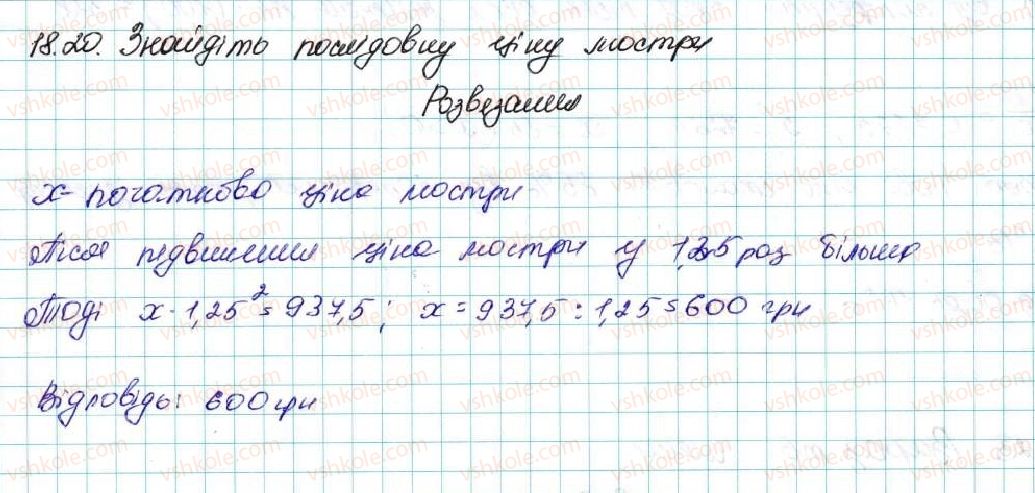 18.20. Знайдіть послідовну ціну люстри
Розвезання
x- початково ціна люстри
Після підвищення ціна люстри у 1,25 раз більша
Тоді x · 1,25² = 937,5; x = 937,5 : 1,25 = 600 грн
Відповідь: 600 грн